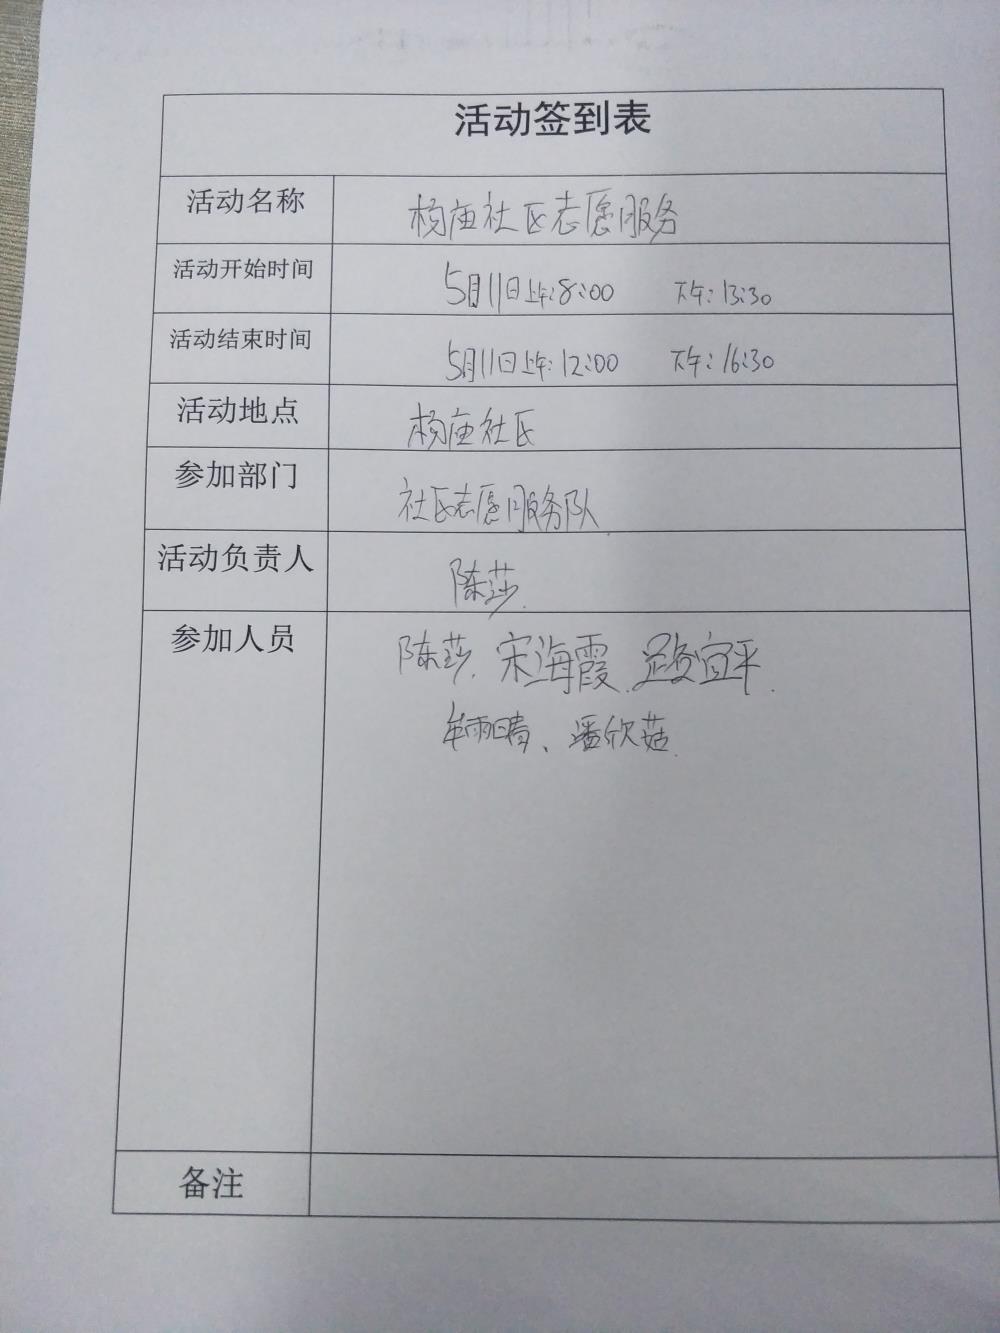 活动签到表
活动名称 杨庙社区志愿服务
活动开始时间 5月11日上午:8:00 下午:13:30
活动结束时间 5月11日上午:12:00 下午:16:30
活动地点 杨庙社区
参加部门 社区志愿服务队
活动负责人 陈莎
参加人员 陈莎、宋海霞、宜平
牟雨晴、潘欣菇
备注